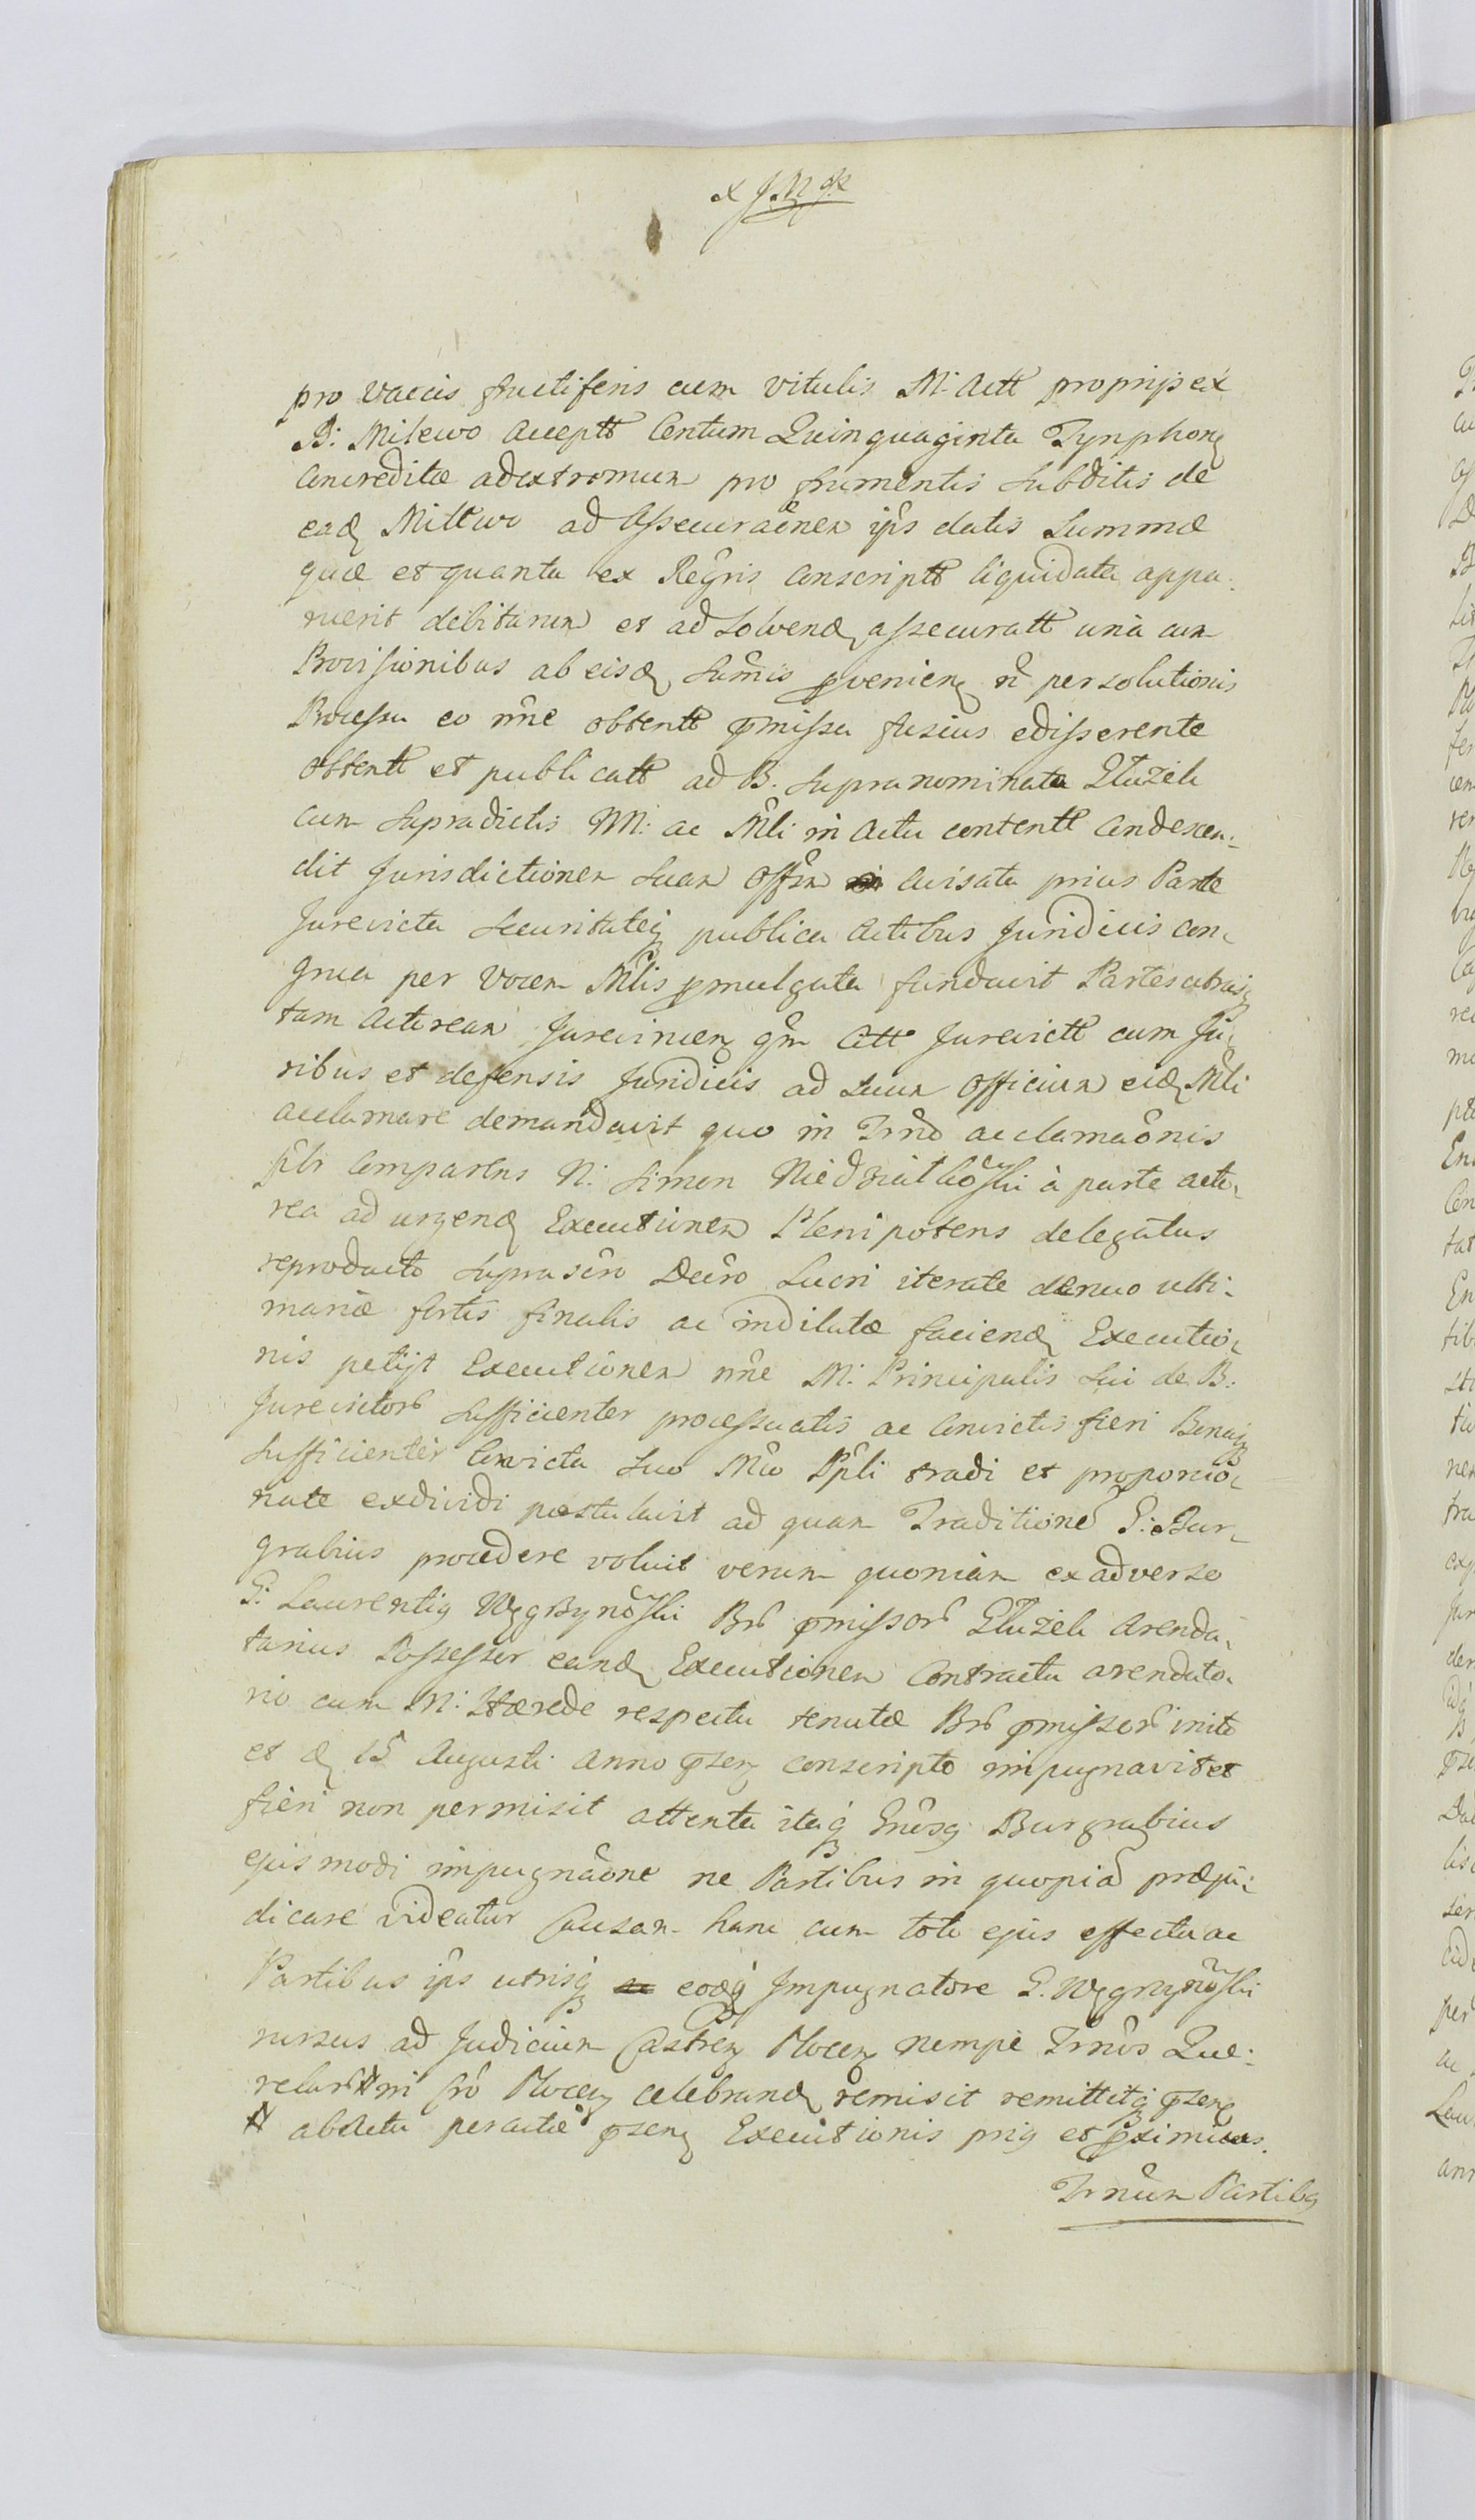 pro vaccis fructiferis cum vitulis M: Actt proprijs ex
B: Milewo acceptt Centum Quinquaginta Tynphonų
Concreditæ ad extremum pro frumentis Subditis de
eadų Milewo ad Assecuraõnem ipŝ datis Summæ
quæ et quanta ex Regr̂is Conscriptt liquidata appa-
ruerit debitarum et ad Solvendų assecuratt unà cum
Provisionibus ab eisdų Sum̂is pvenienų n̂ persolutionis
Processu eo nn̂e obtentt pmissa fusius edisserente
obtentt et publicatt ad B. Supranominata Głużek
cum Supradictis M: ac Mîli in Actu contentt Condescen-
dit Jurisdictionem Suam Offîm avisata prius Parte
Jurevicta Securitateq publica Actibus Juridicis con-
grua per vocem Mîlis pmulgata fundavit Partes utrasq
tam Actoream Jurevincenų qm̂ Citt Jurevictt cum Ju-
ribus et defensis Juridicis ad Suum Officium eidų Mîli
acclamare demandavit quo in Trn̂o acclamaõnis
sibi Comparens N: Simon Niedział​kôwski à parte acto-
rea ad urgendų Executionem Plenipotens delegatus
reproducto Suprascr̂o Decr̂o Lucri iterate denuo ulti-
mariæ fortis finalis ac indilatæ faciendų Executio-
nis petijt Executionem nn̂e M: Principalis Sui de B:
Jurevictor̃ Sufficienter processuatis ac Convictis fieri Bonaq
Sufficienter Convicta Suo Mĉo Pp̂li tradi et proporcio-
nate exdividi postulavit ad quam Traditione͂ G: Bur-
grabius procedere voluit verum quoniam ex adverso
G: Laurentiq Węgrzynôwski Br̃ pmissor̃ Głużek Arenda-
tarius Possessor eandų Executionem Contractu arendato-
rio cum M: Hærede respectu tenutæ Br̃ pmissor̃ inito
et dų 15 Augusti Anno psenų conscripto impugnavit et
fieri non permisit attenta itaq Gnr̂osq Burgrabius
ejusmodi impugnaône ne Partibus in quopia͂ præju-
dicare videatur Causam hanc cum toto ejus effectu ac
Partibus ipŝ utrisq eodq Impugnatore G. Węgrzynôwski
rursus ad Judicium Castrenų Plocenų nempe Trn̂os Que-
relar̃ # in Cr̂o Plocenų celebrandų remisit remittitq psenų
# ab Actu peractæ psenų Executionis priq et pximiores.
Trn̂um Partibq